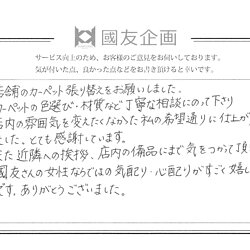 國友企画
サービス向上のため、お客様のご意見をお伺いしております。
気が付いた点、良かった点などをお書き頂けると幸いです。
店舗のカーペット張り替えをお願いしました。
カーペットの色選び・材質など丁寧な相談にのって下さり
店内の雰囲気を変えたくなかった私の希望通りに仕上が
ました、とても感謝しています。
また近隣への挨拶、店内の備品にまで気をつかって頂
國友さんの女性ならではの気配り・心配りがすごく嬉し
です。ありがとうございました。